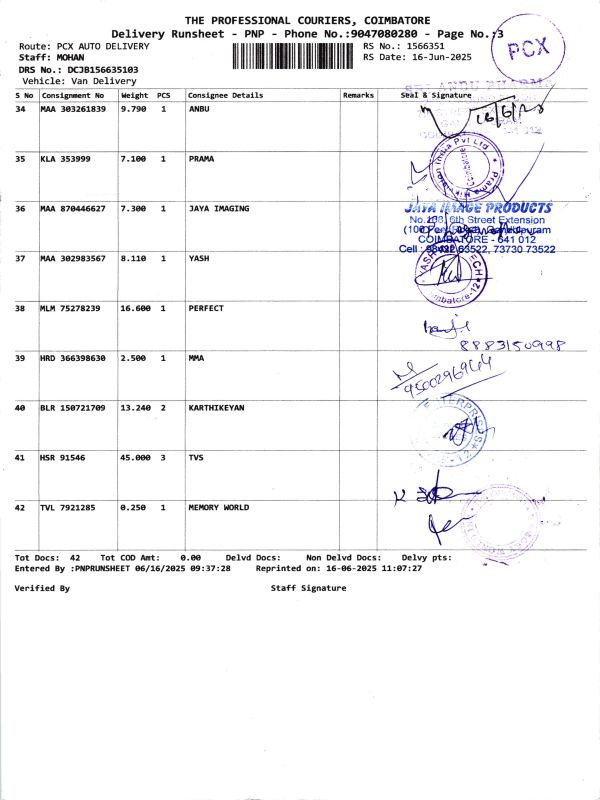 THE PROFESSIONAL COURIERS, COIMBATORE
Delivery Runsheet - PNP - Phone No.:9047080280 - Page No.:3
Route: PCX AUTO DELIVERY RS No.: 1566351
Staff: MOHAN RS Date: 16-Jun-2025
PCX
DRS No.: DCJB156635103
Vehicle: Van Delivery
S No Consignment No Weight PCS Consignee Details Remarks Seal & Signature
34 MAA 303261839 9.790 1 ANBU
16/6/25
35 KLA 353999 7.100 1 PRAMA
36 MAA 870446627 7.300 1 JAYA IMAGING
JAYA IMAGE PRODUCTS
No.166, 6th Street Extension
COIMBATORE - 641 012
Cell : 98422 63522, 73730 73522
37 MAA 302983567 8.110 1 YASH
38 MLM 75278239 16.600 1 PERFECT
8883150998
39 HRD 366398630 2.500 1 MMA
9500296944
40 BLR 150721709 13.240 2 KARTHIKEYAN
ENTERPRISES
41 HSR 91546 45.000 3 TVS
42 TVL 7921285 0.250 1 MEMORY WORLD
Tot Docs: 42 Tot COD Amt: 0.00 Delvd Docs: Non Delvd Docs: Delvy pts:
Entered By :PNPRUNSHEET 06/16/2025 09:37:28 Reprinted on: 16-06-2025 11:07:27
Verified By Staff Signature